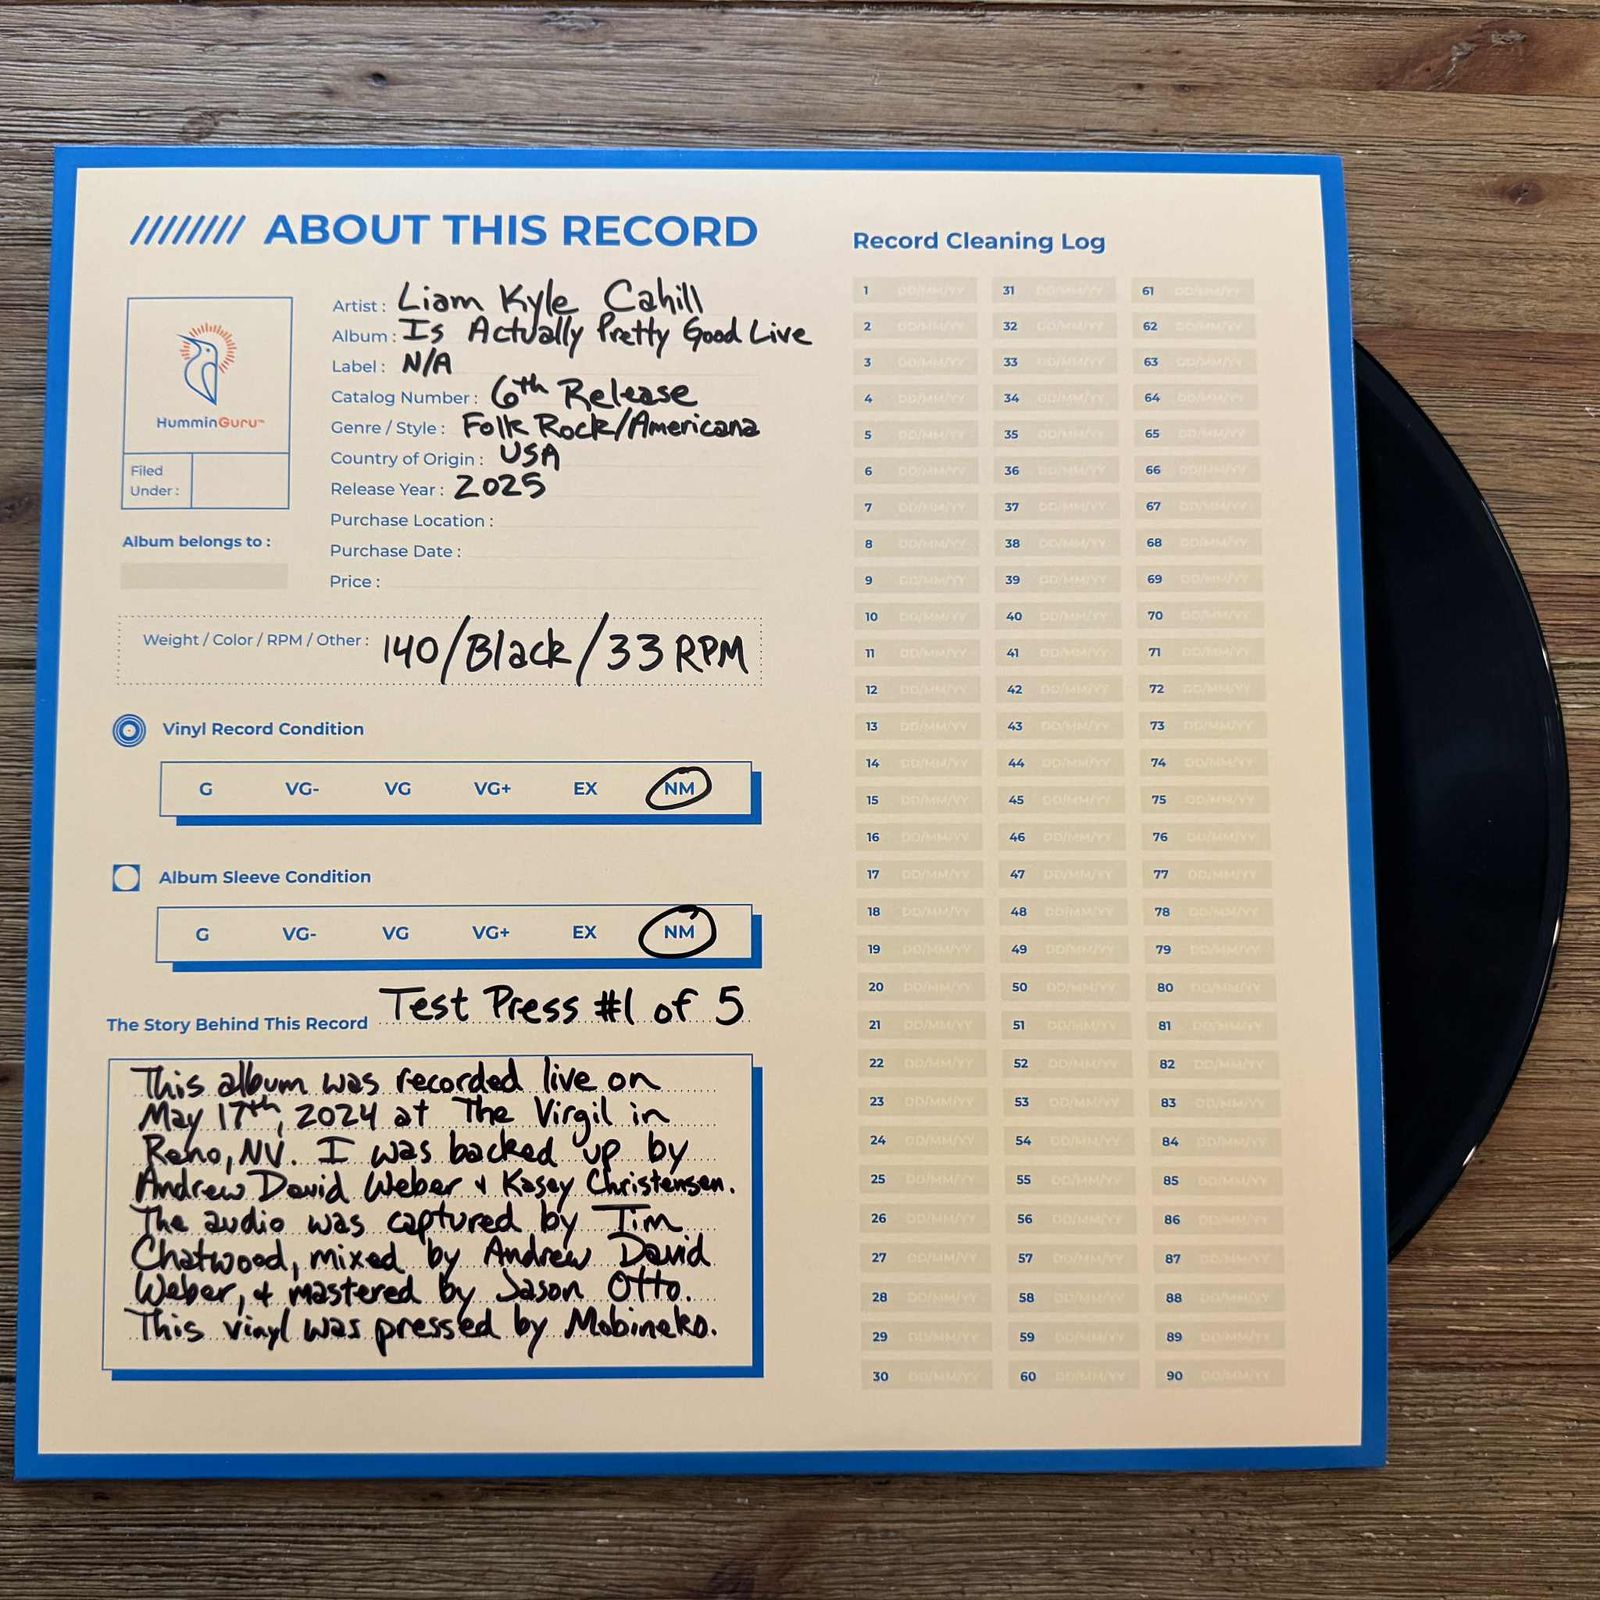 //////// ABOUT THIS RECORD
HumminGuru™
Filed
Under :
Album belongs to :
Artist : Liam Kyle Cahill
Album : Is Actually Pretty Good Live
Label : N/A
Catalog Number : 6th Release
Genre / Style : Folk Rock/Americana
Country of Origin : USA
Release Year : 2025
Purchase Location :
Purchase Date :
Price :
Weight / Color / RPM / Other : 140/Black/33 RPM
Vinyl Record Condition
G VG- VG VG+ EX NM
Album Sleeve Condition
G VG- VG VG+ EX NM
The Story Behind This Record Test Press #1 of 5
This album was recorded live on
May 17th, 2024 at The Virgil in
Reno, NV. I was backed up by
Andrew David Weber + Kasey Christensen.
The audio was captured by Tim
Chatwood, mixed by Andrew David
Weber, + mastered by Jason Otto.
This vinyl was pressed by Mobineko.
Record Cleaning Log
1 DD/MM/YY 31 DD/MM/YY 61 DD/MM/YY
2 DD/MM/YY 32 DD/MM/YY 62 DD/MM/YY
3 DD/MM/YY 33 DD/MM/YY 63 DD/MM/YY
4 DD/MM/YY 34 DD/MM/YY 64 DD/MM/YY
5 DD/MM/YY 35 DD/MM/YY 65 DD/MM/YY
6 DD/MM/YY 36 DD/MM/YY 66 DD/MM/YY
7 DD/MM/YY 37 DD/MM/YY 67 DD/MM/YY
8 DD/MM/YY 38 DD/MM/YY 68 DD/MM/YY
9 DD/MM/YY 39 DD/MM/YY 69 DD/MM/YY
10 DD/MM/YY 40 DD/MM/YY 70 DD/MM/YY
11 DD/MM/YY 41 DD/MM/YY 71 DD/MM/YY
12 DD/MM/YY 42 DD/MM/YY 72 DD/MM/YY
13 DD/MM/YY 43 DD/MM/YY 73 DD/MM/YY
14 DD/MM/YY 44 DD/MM/YY 74 DD/MM/YY
15 DD/MM/YY 45 DD/MM/YY 75 DD/MM/YY
16 DD/MM/YY 46 DD/MM/YY 76 DD/MM/YY
17 DD/MM/YY 47 DD/MM/YY 77 DD/MM/YY
18 DD/MM/YY 48 DD/MM/YY 78 DD/MM/YY
19 DD/MM/YY 49 DD/MM/YY 79 DD/MM/YY
20 DD/MM/YY 50 DD/MM/YY 80 DD/MM/YY
21 DD/MM/YY 51 DD/MM/YY 81 DD/MM/YY
22 DD/MM/YY 52 DD/MM/YY 82 DD/MM/YY
23 DD/MM/YY 53 DD/MM/YY 83 DD/MM/YY
24 DD/MM/YY 54 DD/MM/YY 84 DD/MM/YY
25 DD/MM/YY 55 DD/MM/YY 85 DD/MM/YY
26 DD/MM/YY 56 DD/MM/YY 86 DD/MM/YY
27 DD/MM/YY 57 DD/MM/YY 87 DD/MM/YY
28 DD/MM/YY 58 DD/MM/YY 88 DD/MM/YY
29 DD/MM/YY 59 DD/MM/YY 89 DD/MM/YY
30 DD/MM/YY 60 DD/MM/YY 90 DD/MM/YY